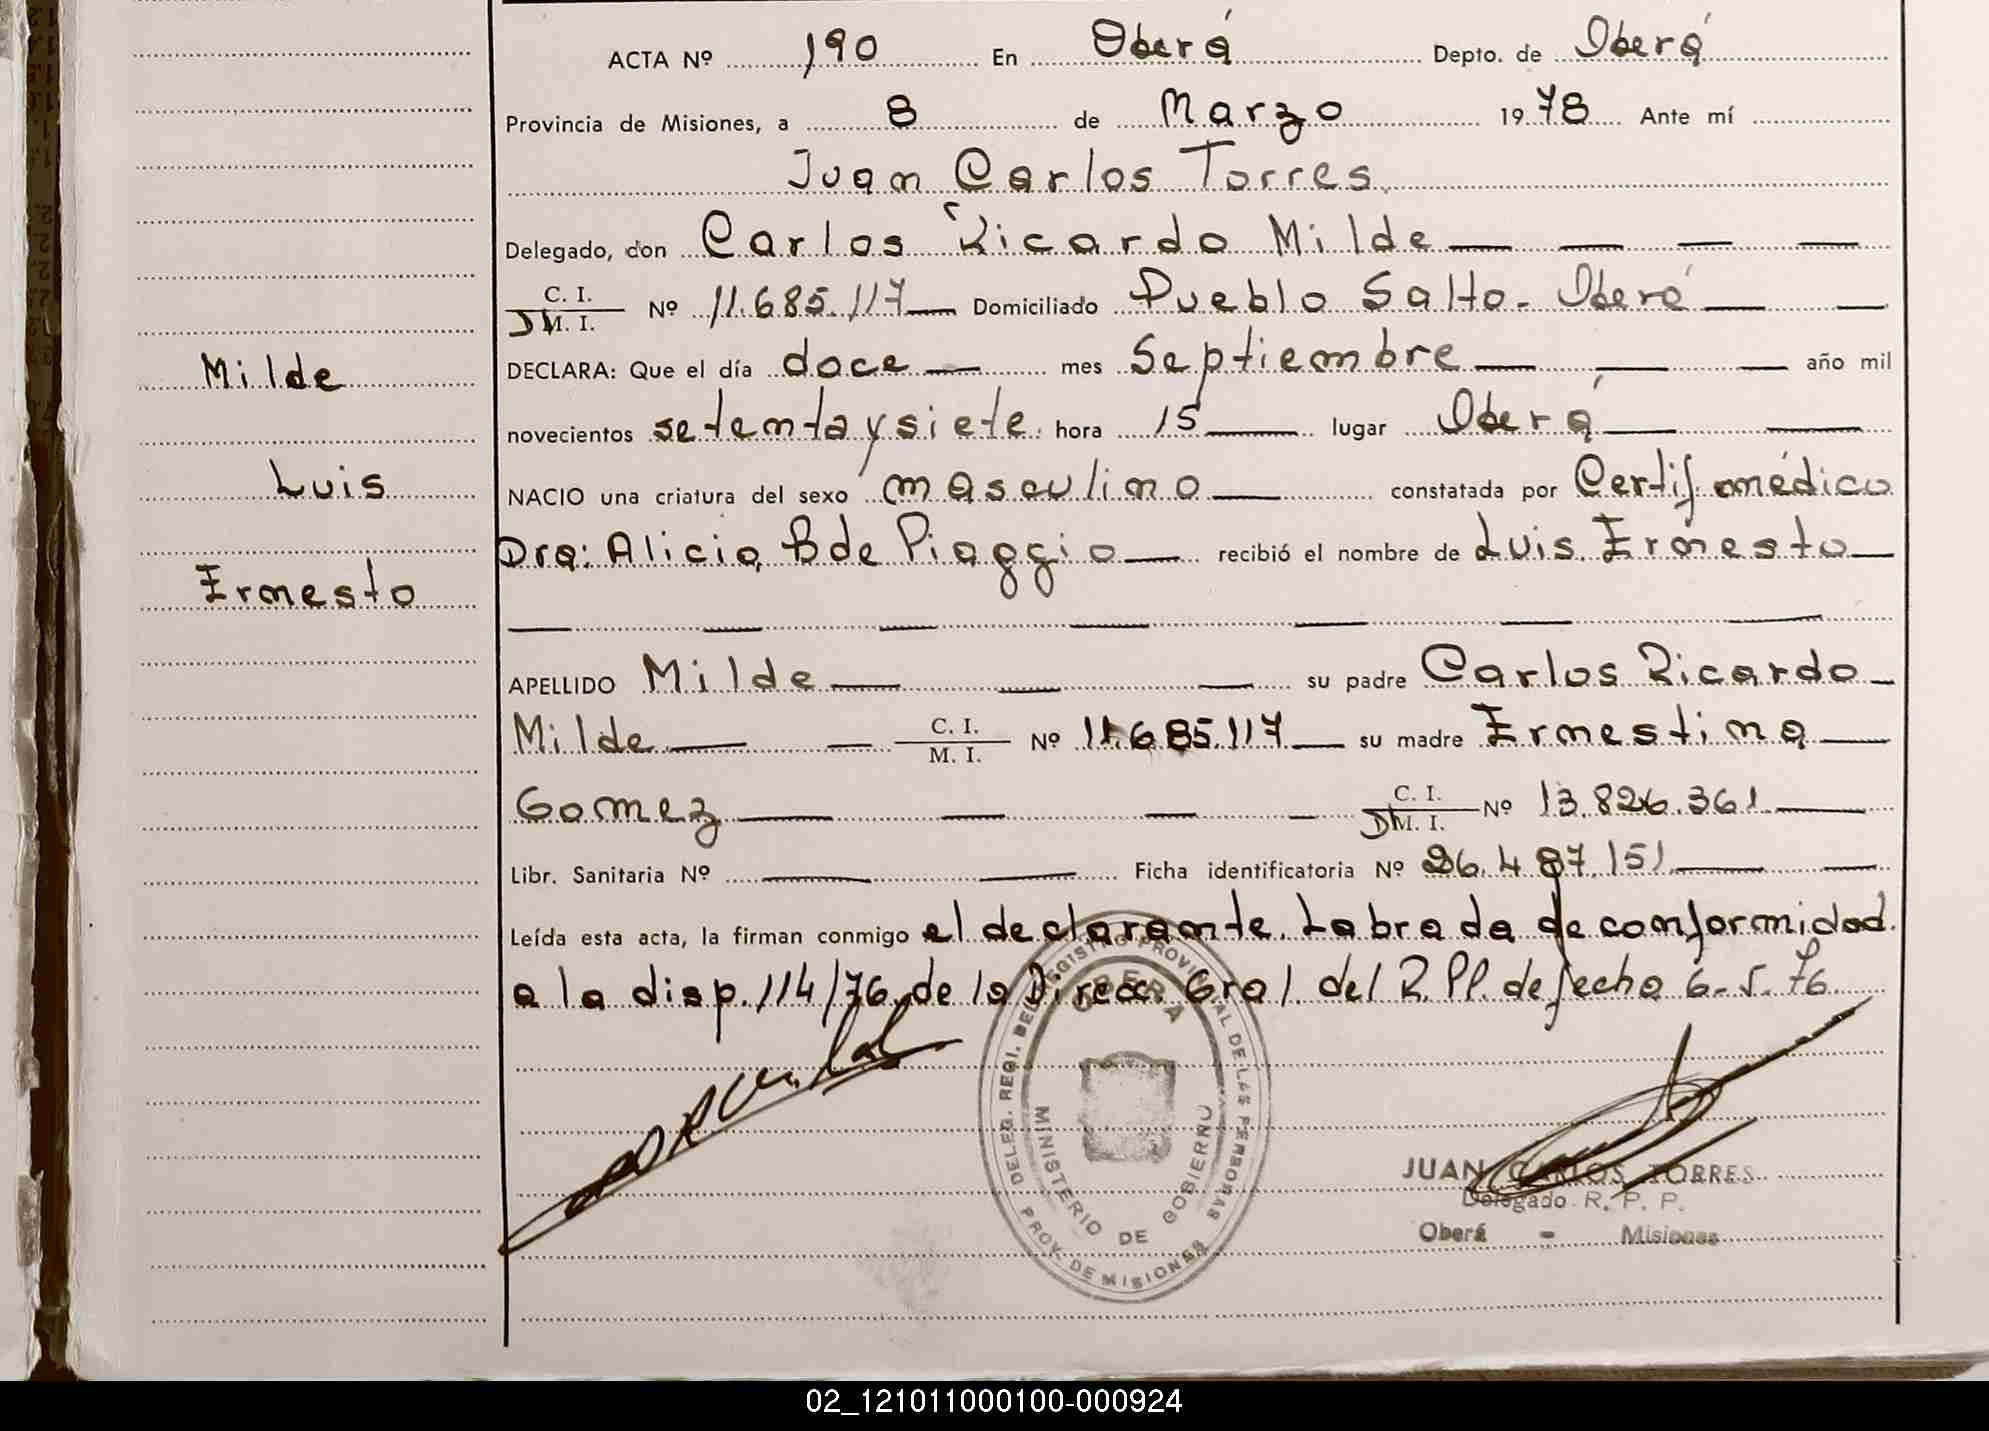 ACTA Nº 190 En Oberá Depto. de Oberá
Provincia de Misiones, a 8 de Marzo 1978 Ante mí
Juan Carlos Torres
Delegado, don Carlos Ricardo Milde
C. I. DM. I. Nº 11.685.117 Domiciliado Pueblo Salto - Oberá
DECLARA: Que el día doce mes Septiembre año mil
Milde
novecientos setenta y siete hora 15 lugar Oberá
Luis
NACIO una criatura del sexo masculino constatada por Certif. médico
Dra: Alicia B de Piaggio recibió el nombre de Luis Ernesto
Ernesto
APELLIDO Milde su padre Carlos Ricardo
Milde C. I. M. I. Nº 11.685.117 su madre Ernestina
Gomez C. I. DM. I. Nº 13.826.361
Libr. Sanitaria Nº Ficha identificatoria Nº 26.487.151
Leída esta acta, la firman conmigo el declarante. Labrada de conformidad
a la disp. 114/76 de la Direcc. Gral. del R. PP. de fecha 6-5-76
DELEG. REGI. DEL REGISTRO PROVINCIAL DE LAS PERSONAS
OBERA
MINISTERIO DE GOBIERNO
PROV. DE MISIONES
JUAN CARLOS TORRES
Delegado R. P. P.
Oberá - Misiones
02_121011000100-000924